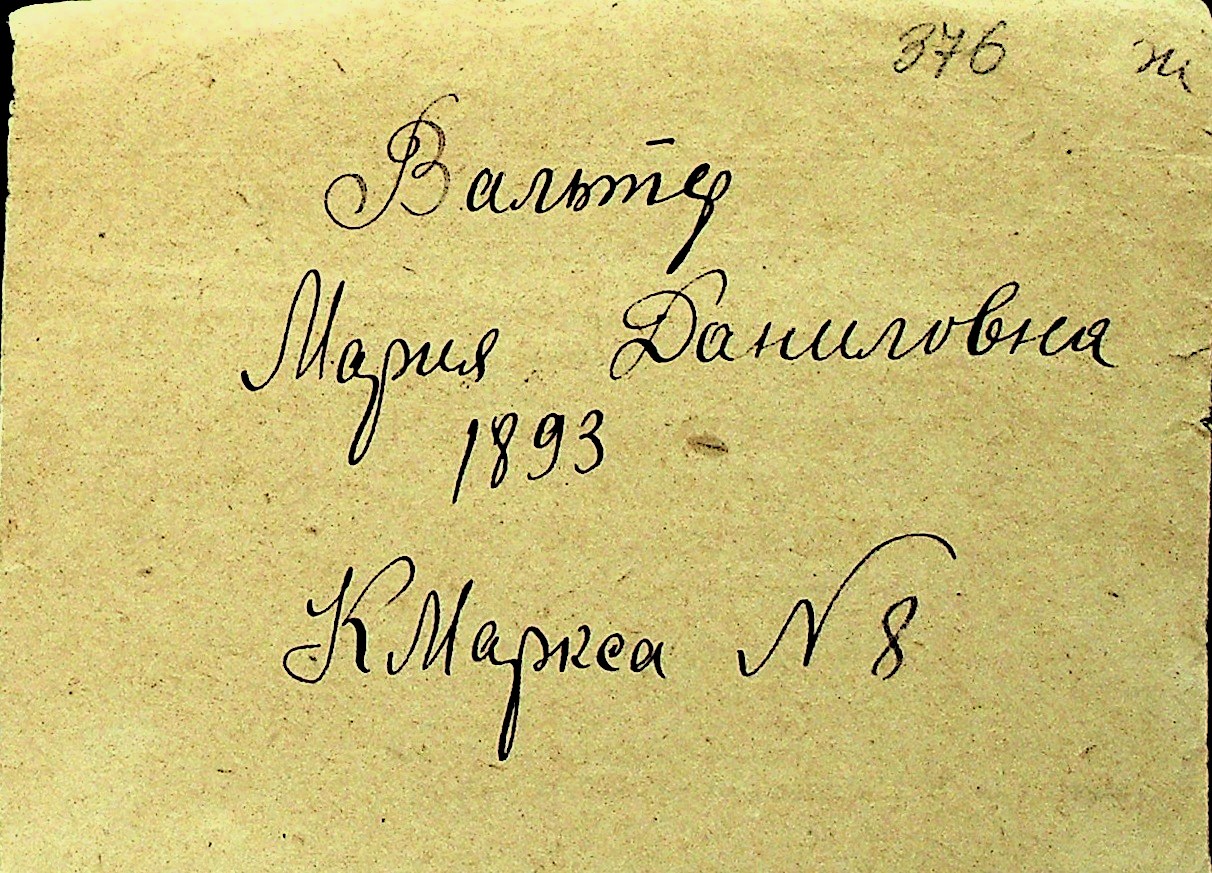 376 ж
Вальтер
Мария Даниловна
1893
К Маркса N 8